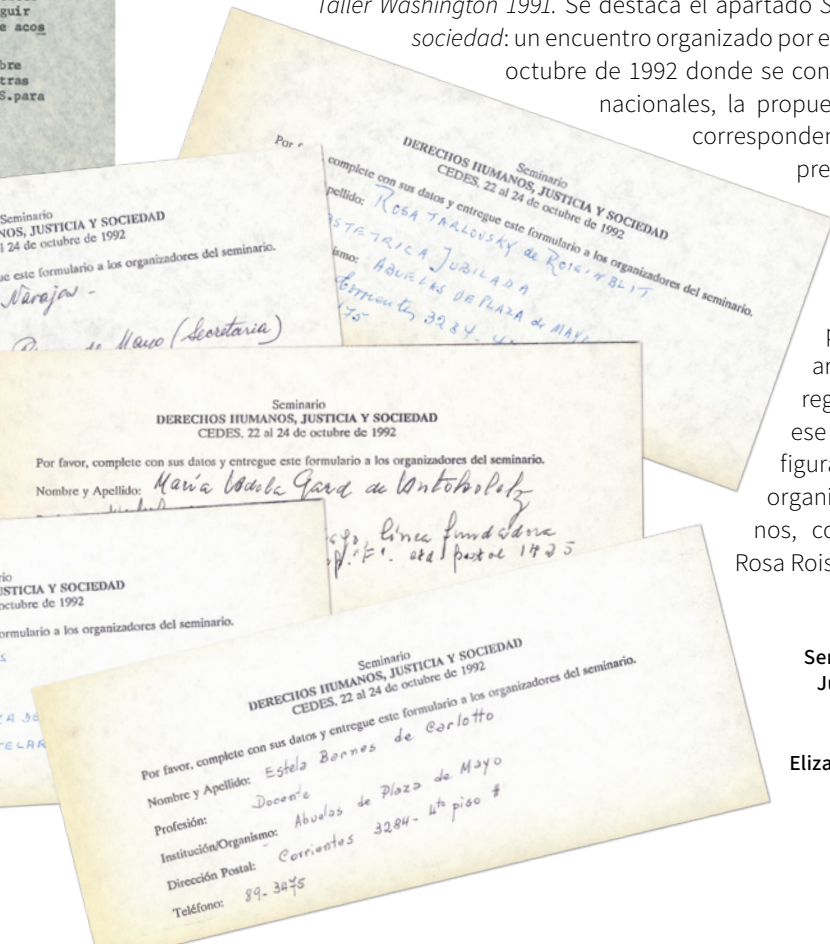 guir
e acos
bre
tras
S.para
Taller Washington 1991. Se destaca el apartado S
sociedad: un encuentro organizado por e
octubre de 1992 donde se con
nacionales, la propue
corresponden
pre
p
ar
reg
ese
figura
organi
nos, co
Rosa Rois
Ser
Ju
Eliza
Seminario
DERECHOS HUMANOS, JUSTICIA Y SOCIEDAD
CEDES, 22 al 24 de octubre de 1992
Por f complete con sus datos y entregue este formulario a los organizadores del seminario.
pellido: ROSA TARLOVSKY de ROISINBLIT
STETRICA JUBILADA
ismo: ABUELAS DE PLAZA de MAYO
3284
75
Seminario
NOS, JUSTICIA Y SOCIEDAD
l 24 de octubre de 1992
ue este formulario a los organizadores del seminario.
Navajas -
de Mayo (Secretaria)
Seminario
DERECHOS HUMANOS, JUSTICIA Y SOCIEDAD
CEDES, 22 al 24 de octubre de 1992
Por favor, complete con sus datos y entregue este formulario a los organizadores del seminario.
Nombre y Apellido: María Gard de
línea fundadora
postal 1425
rio
STICIA Y SOCIEDAD
octubre de 1992
ormulario a los organizadores del seminario.
s
A DE
TELAR
Seminario
DERECHOS HUMANOS, JUSTICIA Y SOCIEDAD
CEDES, 22 al 24 de octubre de 1992
Por favor, complete con sus datos y entregue este formulario a los organizadores del seminario.
Nombre y Apellido: Estela Barnes de Carlotto
Profesión: Docente
Institución/Organismo: Abuelas de Plaza de Mayo
Dirección Postal: Corrientes 3284 - 4to piso #
Teléfono: 89-3475